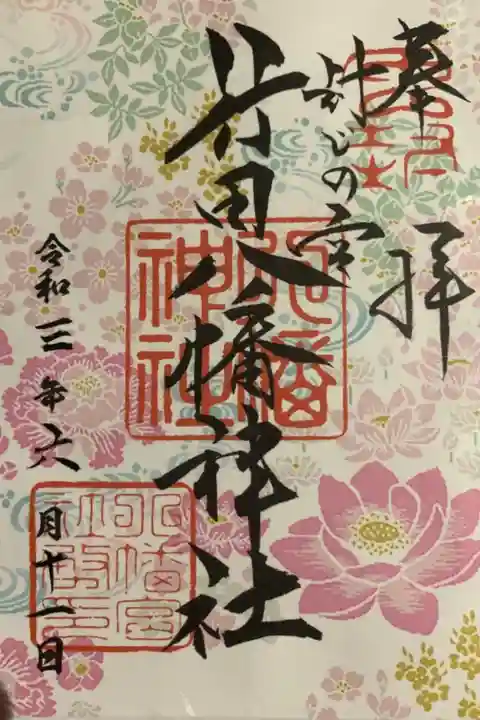 奉拝
封じの宮
行田八幡神社
八幡
神社
令和三年六月十一日
八幡宮